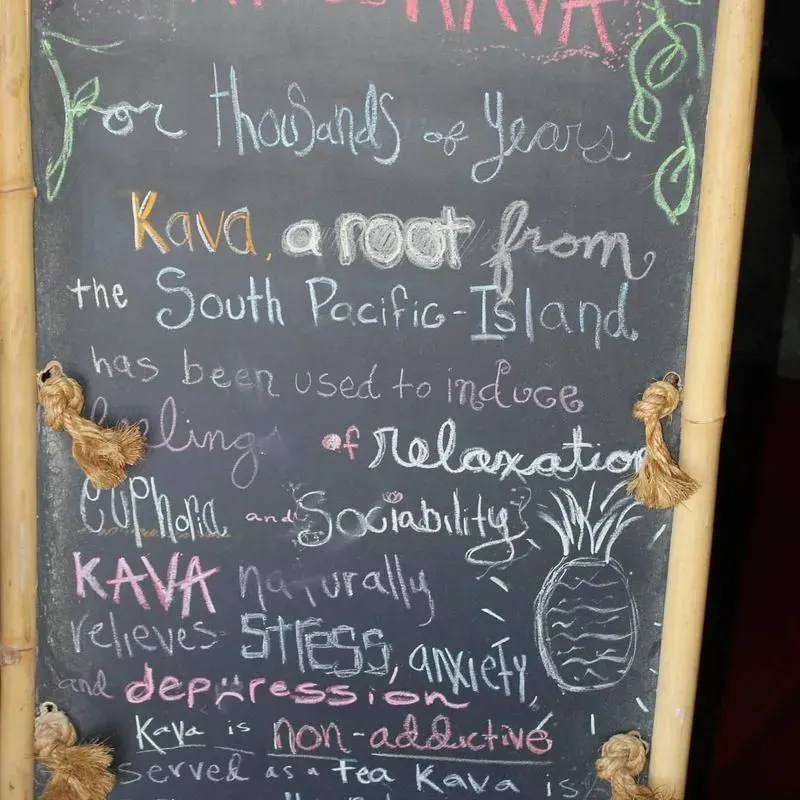 KAVA
For thousands of years
Kava, a root from
the South Pacific-Island
has been used to induce
feelings of relaxation
euphoria and Sociability
KAVA naturally
relieves STRESS, anxiety,
and depression
Kava is non-addictive
served as a tea Kava is